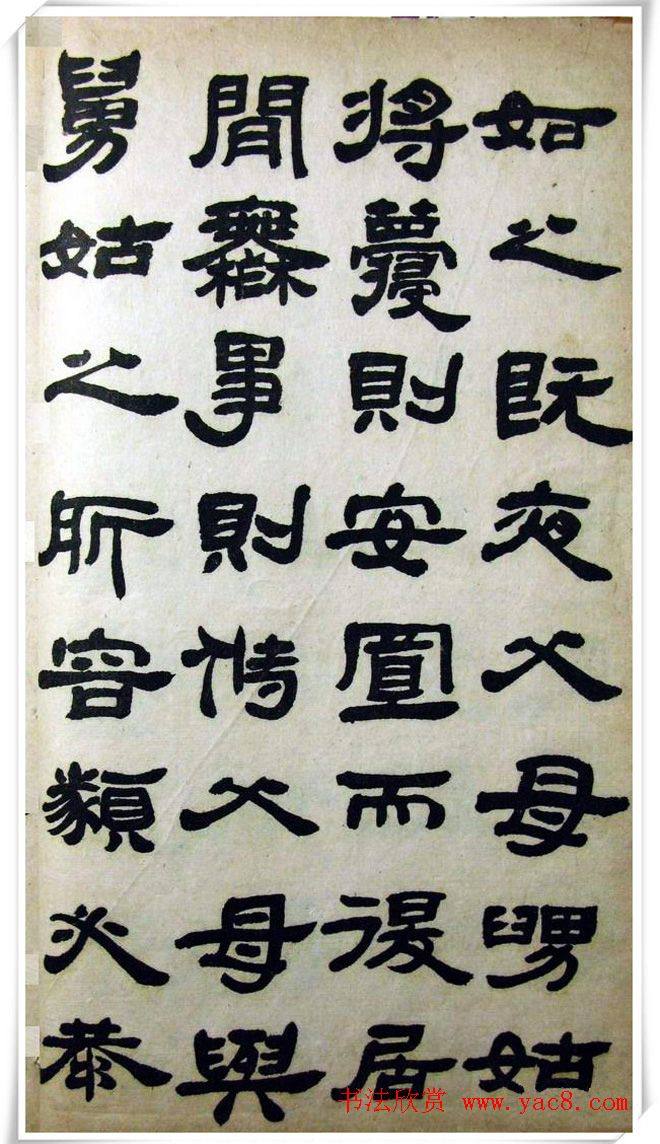 如之既夜父母舅姑
將寢則安置而退居
閒無事則侍父母與
舅姑之所容䫉必恭
书法欣赏 www.yac8.com